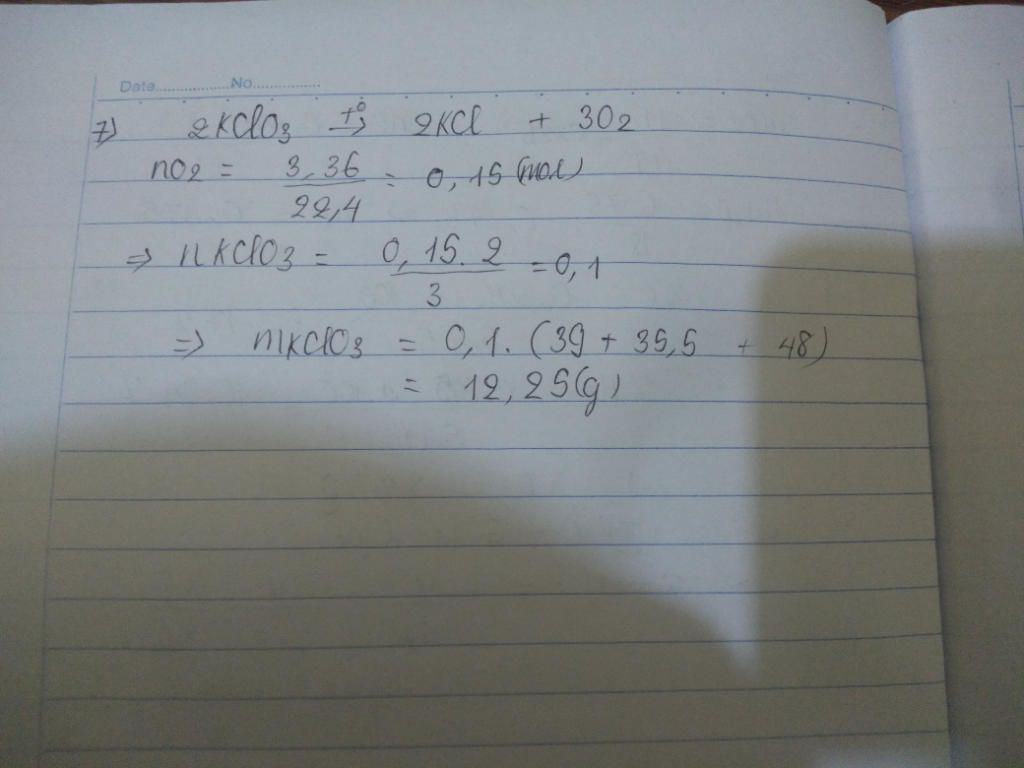 Date.................No................
7) 2KClO3 t° → 2KCl + 3O2
nO2 = 3,36 / 22,4 = 0,15 (mol)
=> nKClO3 = 0,15.2 / 3 = 0,1
=> mKClO3 = 0,1. (39 + 35,5 + 48)
= 12,25(g)